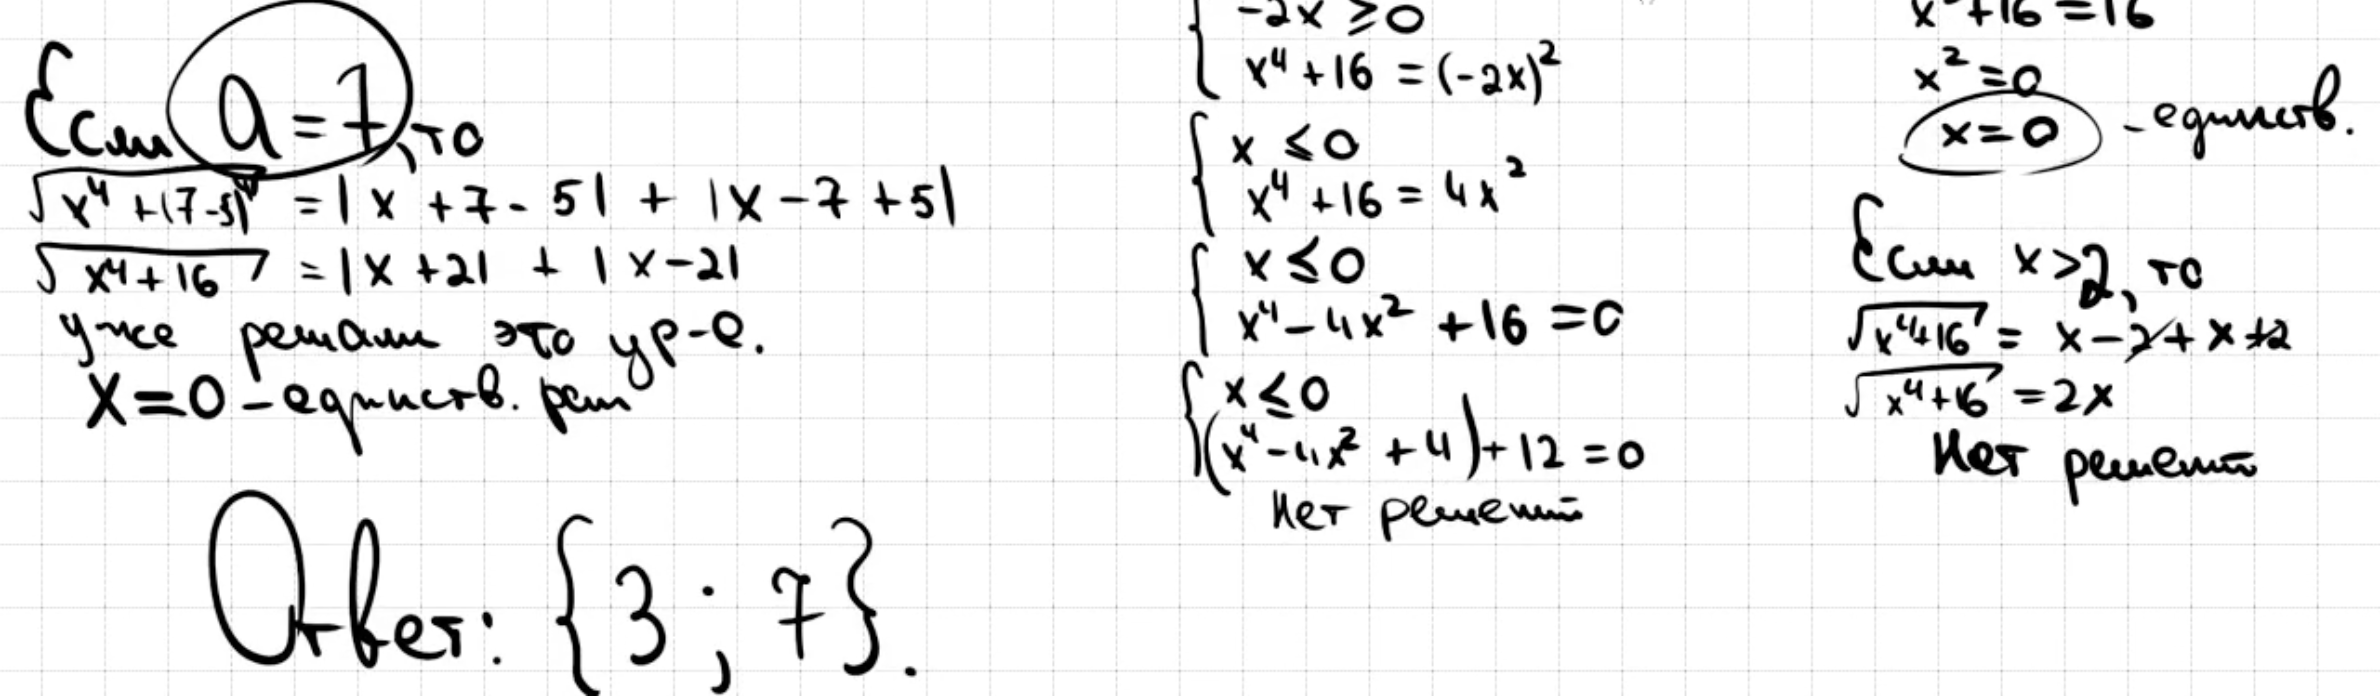 Если a = 7, то
√(x⁴ + (7-5)⁴) = |x + 7 - 5| + |x - 7 + 5|
√(x⁴ + 16) = |x + 2| + |x - 2|
уже решали это ур-е.
x = 0 - единств. реш
Ответ: {3 ; 7}.
-2x ⩾ 0
x⁴ + 16 = (-2x)²
x ≤ 0
x⁴ + 16 = 4x²
x ≤ 0
x⁴ - 4x² + 16 = 0
x ≤ 0
(x⁴ - 4x² + 4) + 12 = 0
Нет решений
+16 = 16
x² = 0
x = 0 - единств.
Если x > 2, то
√(x⁴ + 16) = x - 2 + x + 2
√(x⁴ + 16) = 2x
Нет решений